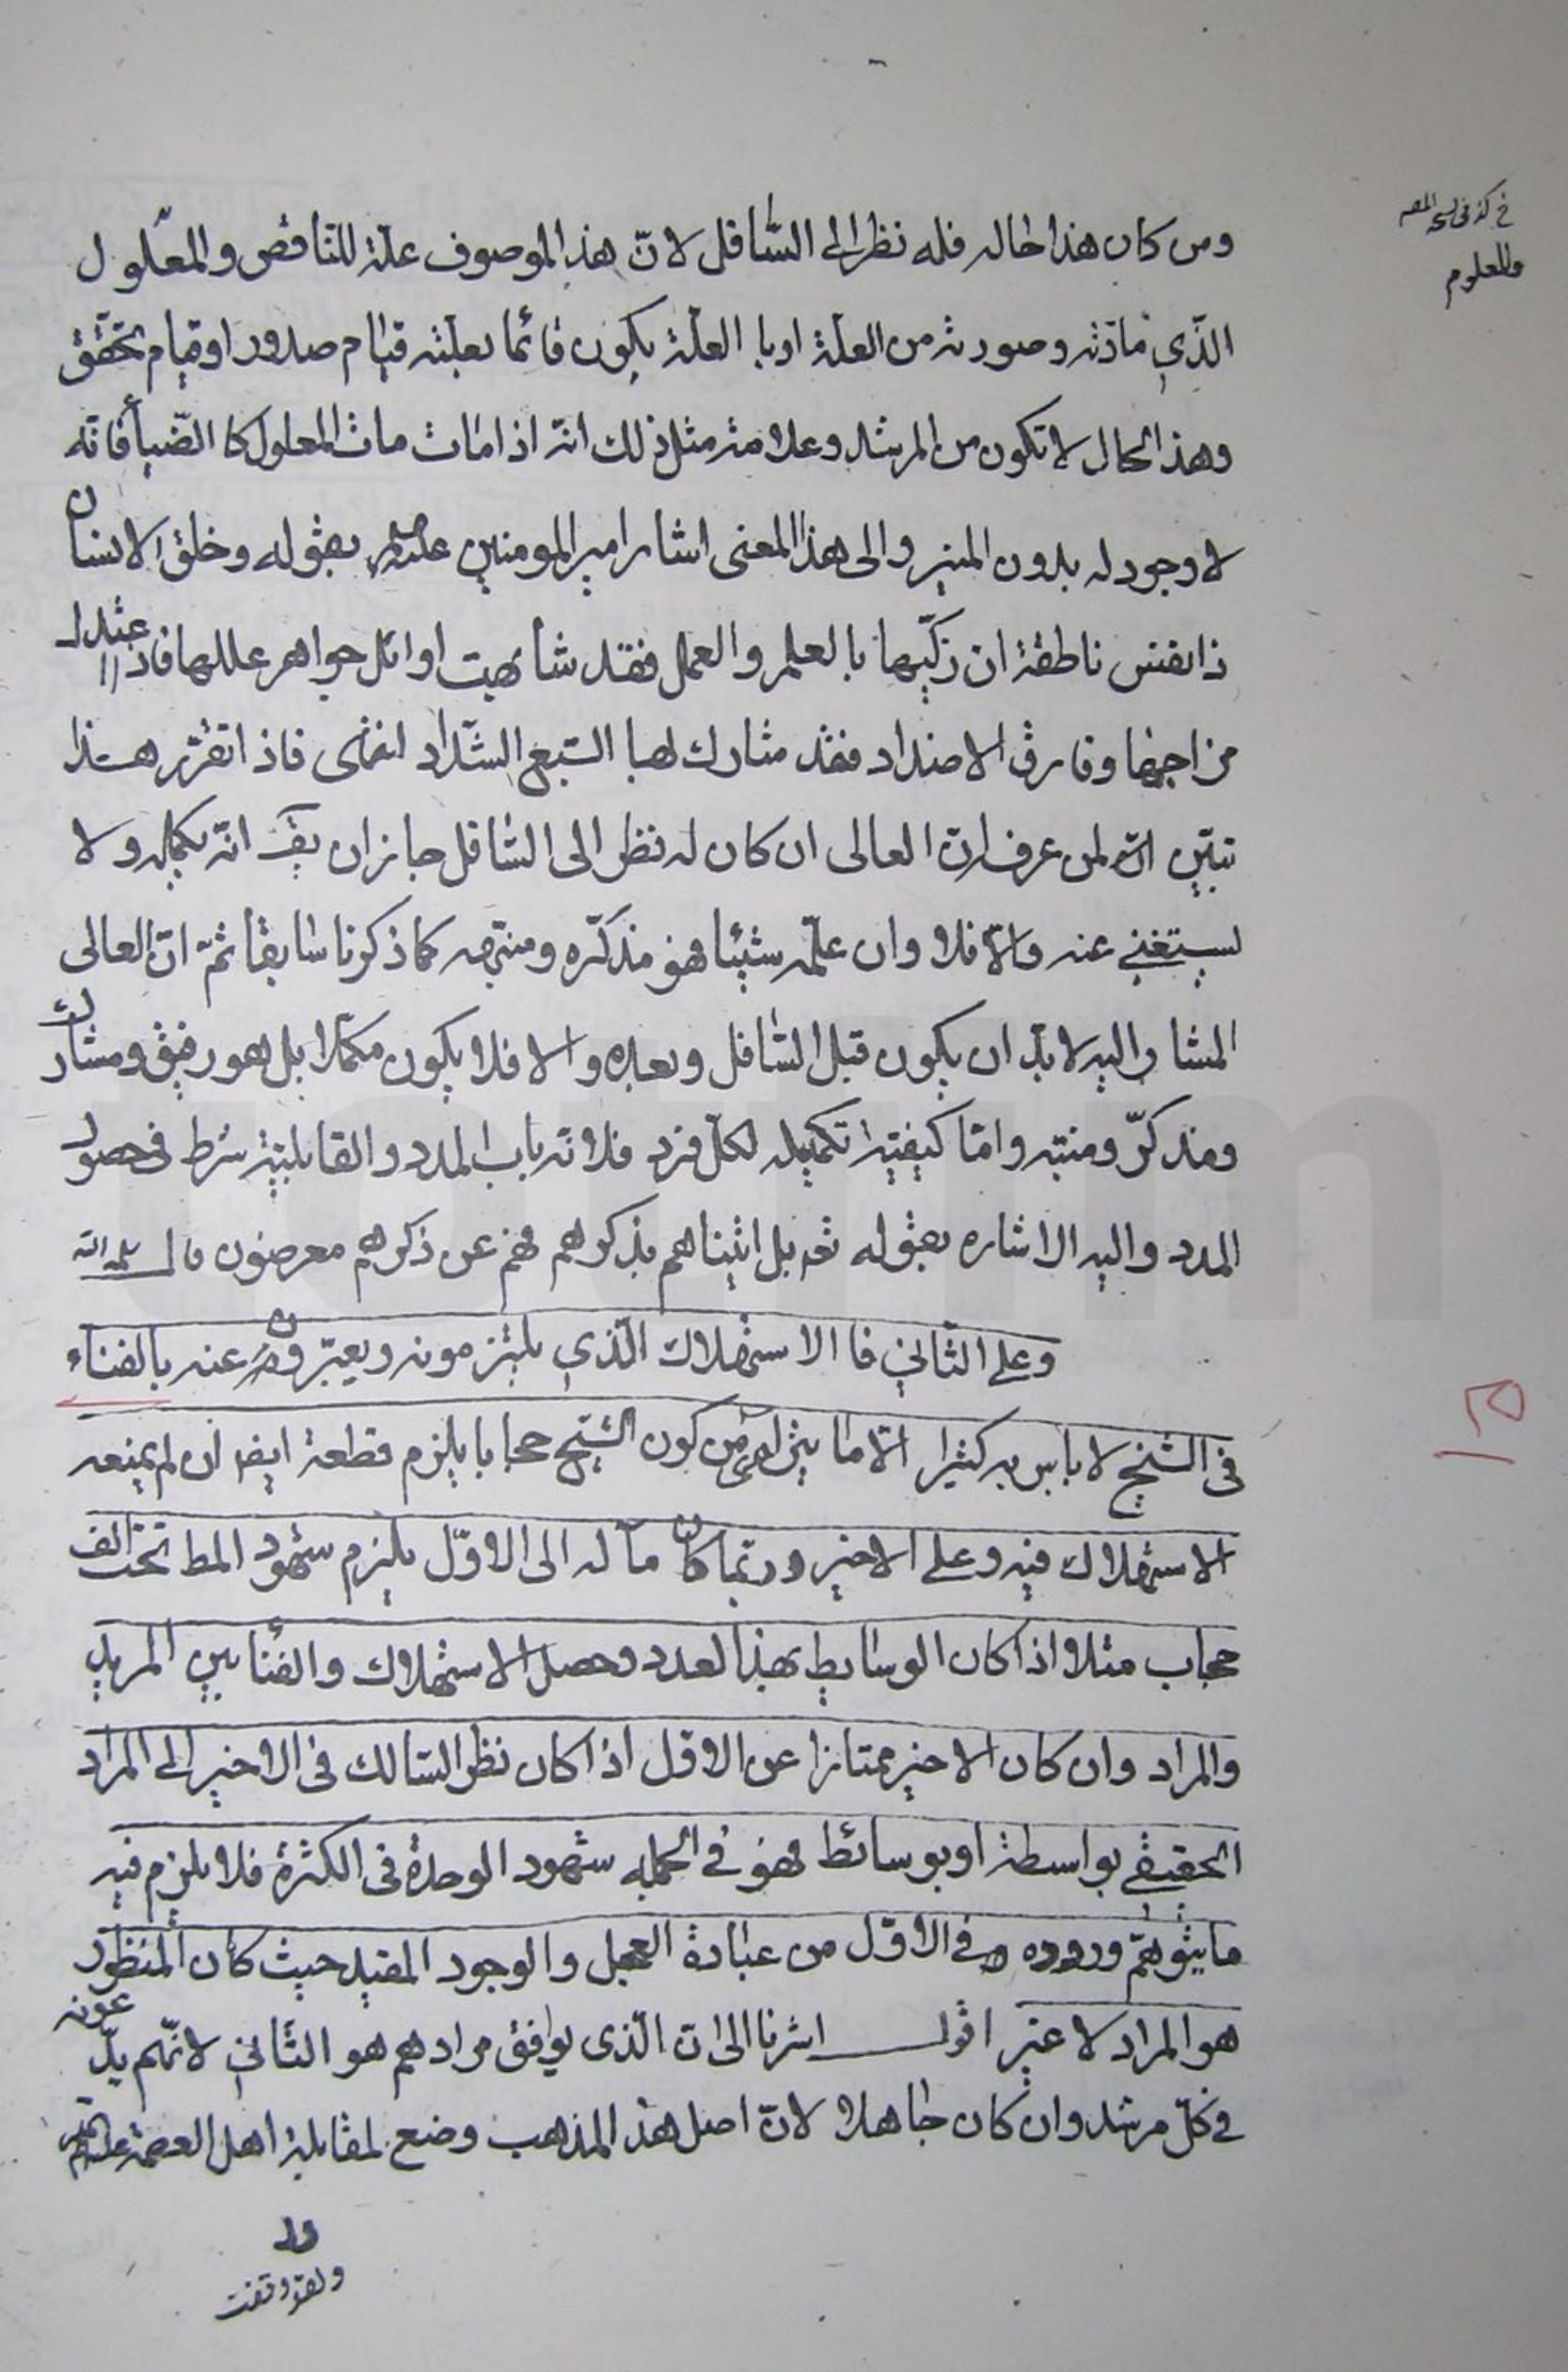 خ كذ فى نسخة المصه
والمعلوم
ومن كان هذا حاله فله نظر الى السّافل لانّ هذا الموصوف علّة للنّاقص والمعلول
الّذي مادّته وصورته من العلّة او با العلّة يكون قائما بعلّته قيام صدور او قيام تحقّق
وهذا الحال لا تكون من المرشد وعلامة مثل ذلك انّه اذا مات مات المعلول كا الضّياء فانّه
لا وجود له بدون المنير والى هذا المعنى اشار امير المومنين بقوله وخلق الانسان
ذا نفس ناطقة ان زكّيها با لعلم والعمل فقد شابهت اوائل جواهر عللها فاذا اعتدل
مزاجها وفارق الاضداد فقد شارك بها السّبع الشّداد انتهى فاذا تقرّر هذا
تبيّن انّه لمن عرف ان العالى ان كان له نظر الى السّافل جاز ان يق انّه يكمله ولا
يستغنى عنه والّا فلا وان علّمه شيئا فهو مذكّره ومنبّهه كما ذكرنا سابقا ثمّ انّ العالى
المشار اليه لا بدّ ان يكون قبل السّافل وبعده والا فلا يكون مكمّلا بل هو رفيق ومشارك
ومذكّر ومنبّه وامّا كيفيّة تكميله لكلّ فرد فلانّه باب المدد والقابليّة شرط فى حصول
المدد واليه الاشاره بقوله تع بل اتيناهم بذكرهم فهم عن ذكرهم معرضون قال سلمه الله
وعلى الثّانى فا الاستهلاك الّذي يلتزمونه ويعبّرون عنه بالفناء
فى الشّيخ لا باس به كثيرا الّا ما يتراءى من كون الشّيخ حجابا يلزم قطعه ايض ان لم يمنعه
الاستهلاك فيه وعلى الاخير وربّما كان مآله الى الاوّل يلزم شهود المط تحت الف
حجاب مثلا واذا كان الوسايط بهذا لعدد وحصل الاستهلاك والفنا بين المريد
والمراد وان كان الاخير ممتازا عن الاوّل اذا كان نظر السّالك فى الاخير الى المراد
الحقيقى بواسطة او بوسائط فهو فى الجمله شهود الوحدة فى الكثرة فلا يلزم فيه
ما يتوهّم وروده فى الاوّل من عبادة العجل والوجود المقيد حيث كان المنظور
هو المراد لا غير اقول اشرنا الى ان الّذى يوافق مرادهم هو الثّانى لانّهم يدّعونه
فى كلّ مرشد وان كان جاهلا لانّ اصل هذا المذهب وضع لمقابلة اهل العصمة عليهم